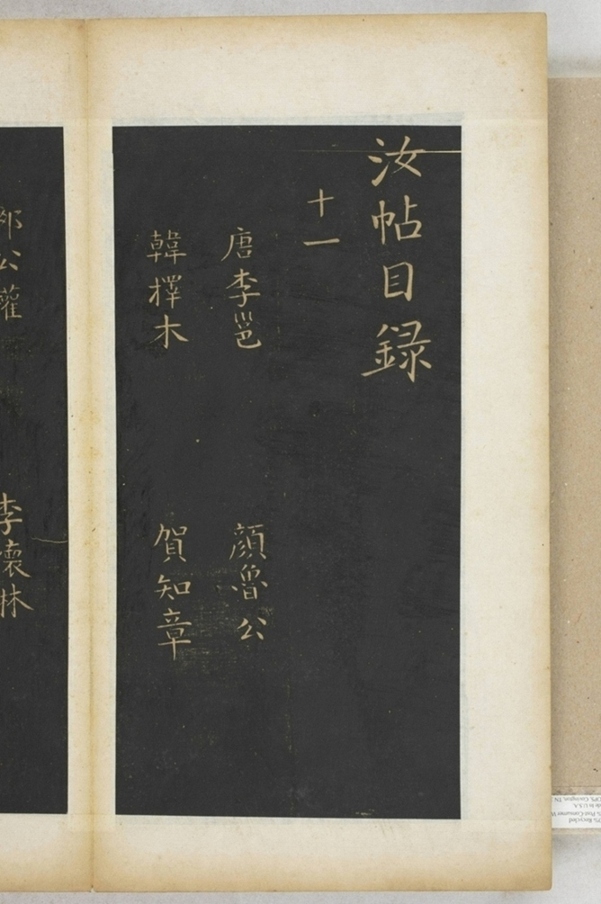 汝帖目録
十一
唐李邕
顔魯公
韓擇木
賀知章
李懷林